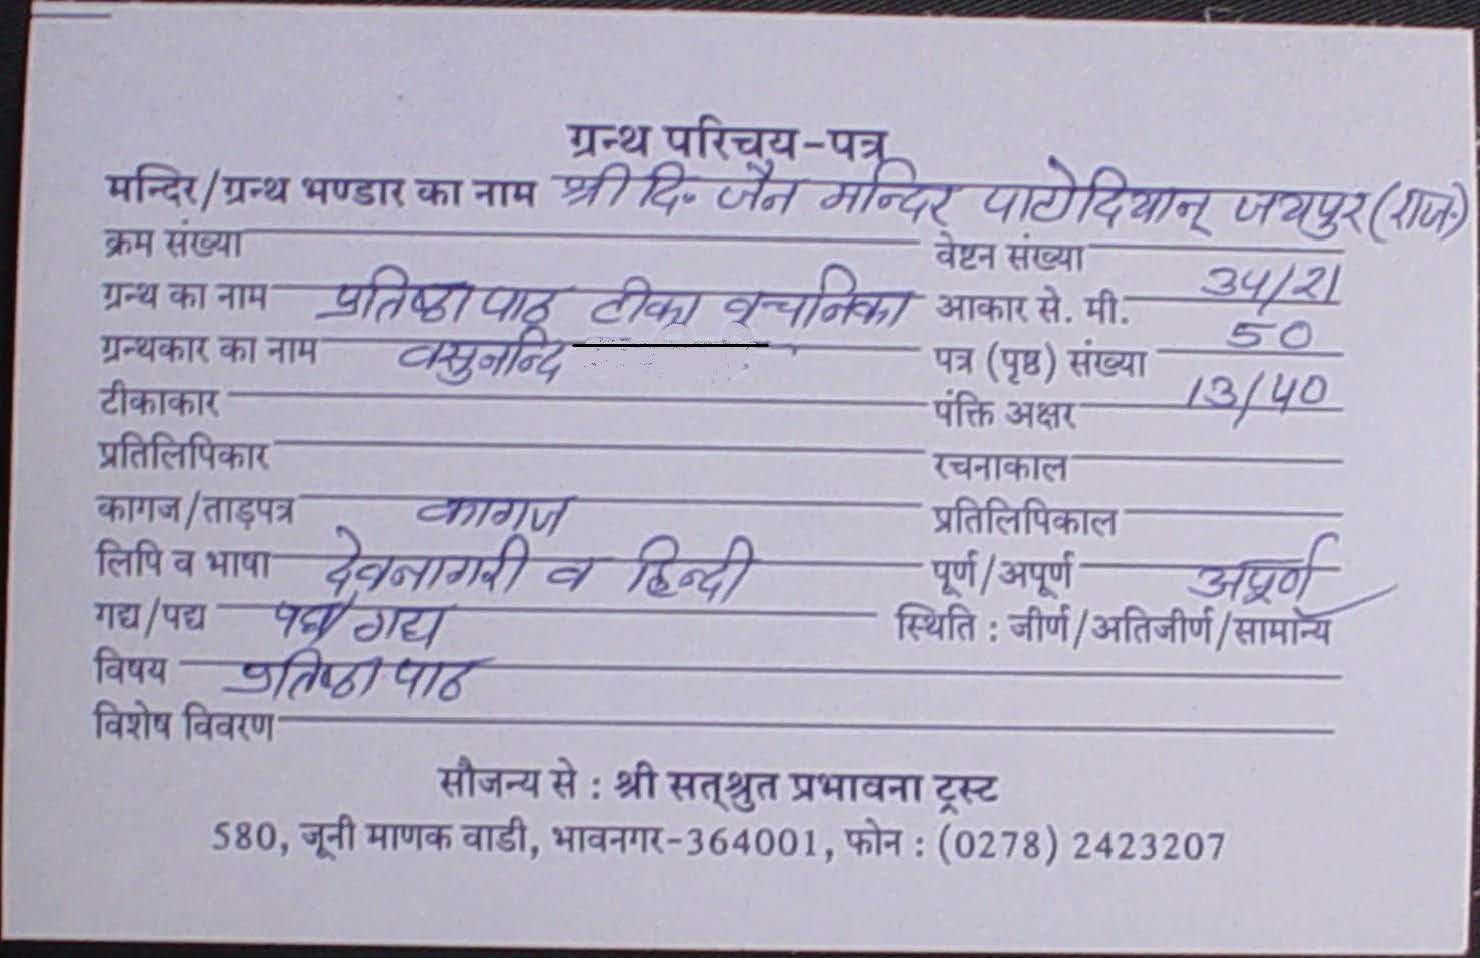 ग्रन्थ परिचय-पत्र
मन्दिर/ग्रन्थ भण्डार का नाम श्री दि. जैन मन्दिर पाटोदियान् जयपुर (राज.)
क्रम संख्या वेष्टन संख्या
ग्रन्थ का नाम प्रतिष्ठा पाठ टीका वचनिका आकार से. मी. 34/21
ग्रन्थकार का नाम वसुनन्दि पत्र (पृष्ठ) संख्या 50
टीकाकार पंक्ति अक्षर 13/40
प्रतिलिपिकार रचनाकाल
कागज/ताड़पत्र कागज प्रतिलिपिकाल
लिपि व भाषा देवनागरी व हिन्दी पूर्ण/अपूर्ण अपूर्ण
गद्य/पद्य पद्य/गद्य स्थिति : जीर्ण/अतिजीर्ण/सामान्य
विषय प्रतिष्ठा पाठ
विशेष विवरण
सौजन्य से : श्री सत्श्रुत प्रभावना ट्रस्ट
580, जूनी माणक वाडी, भावनगर-364001, फोन : (0278) 2423207